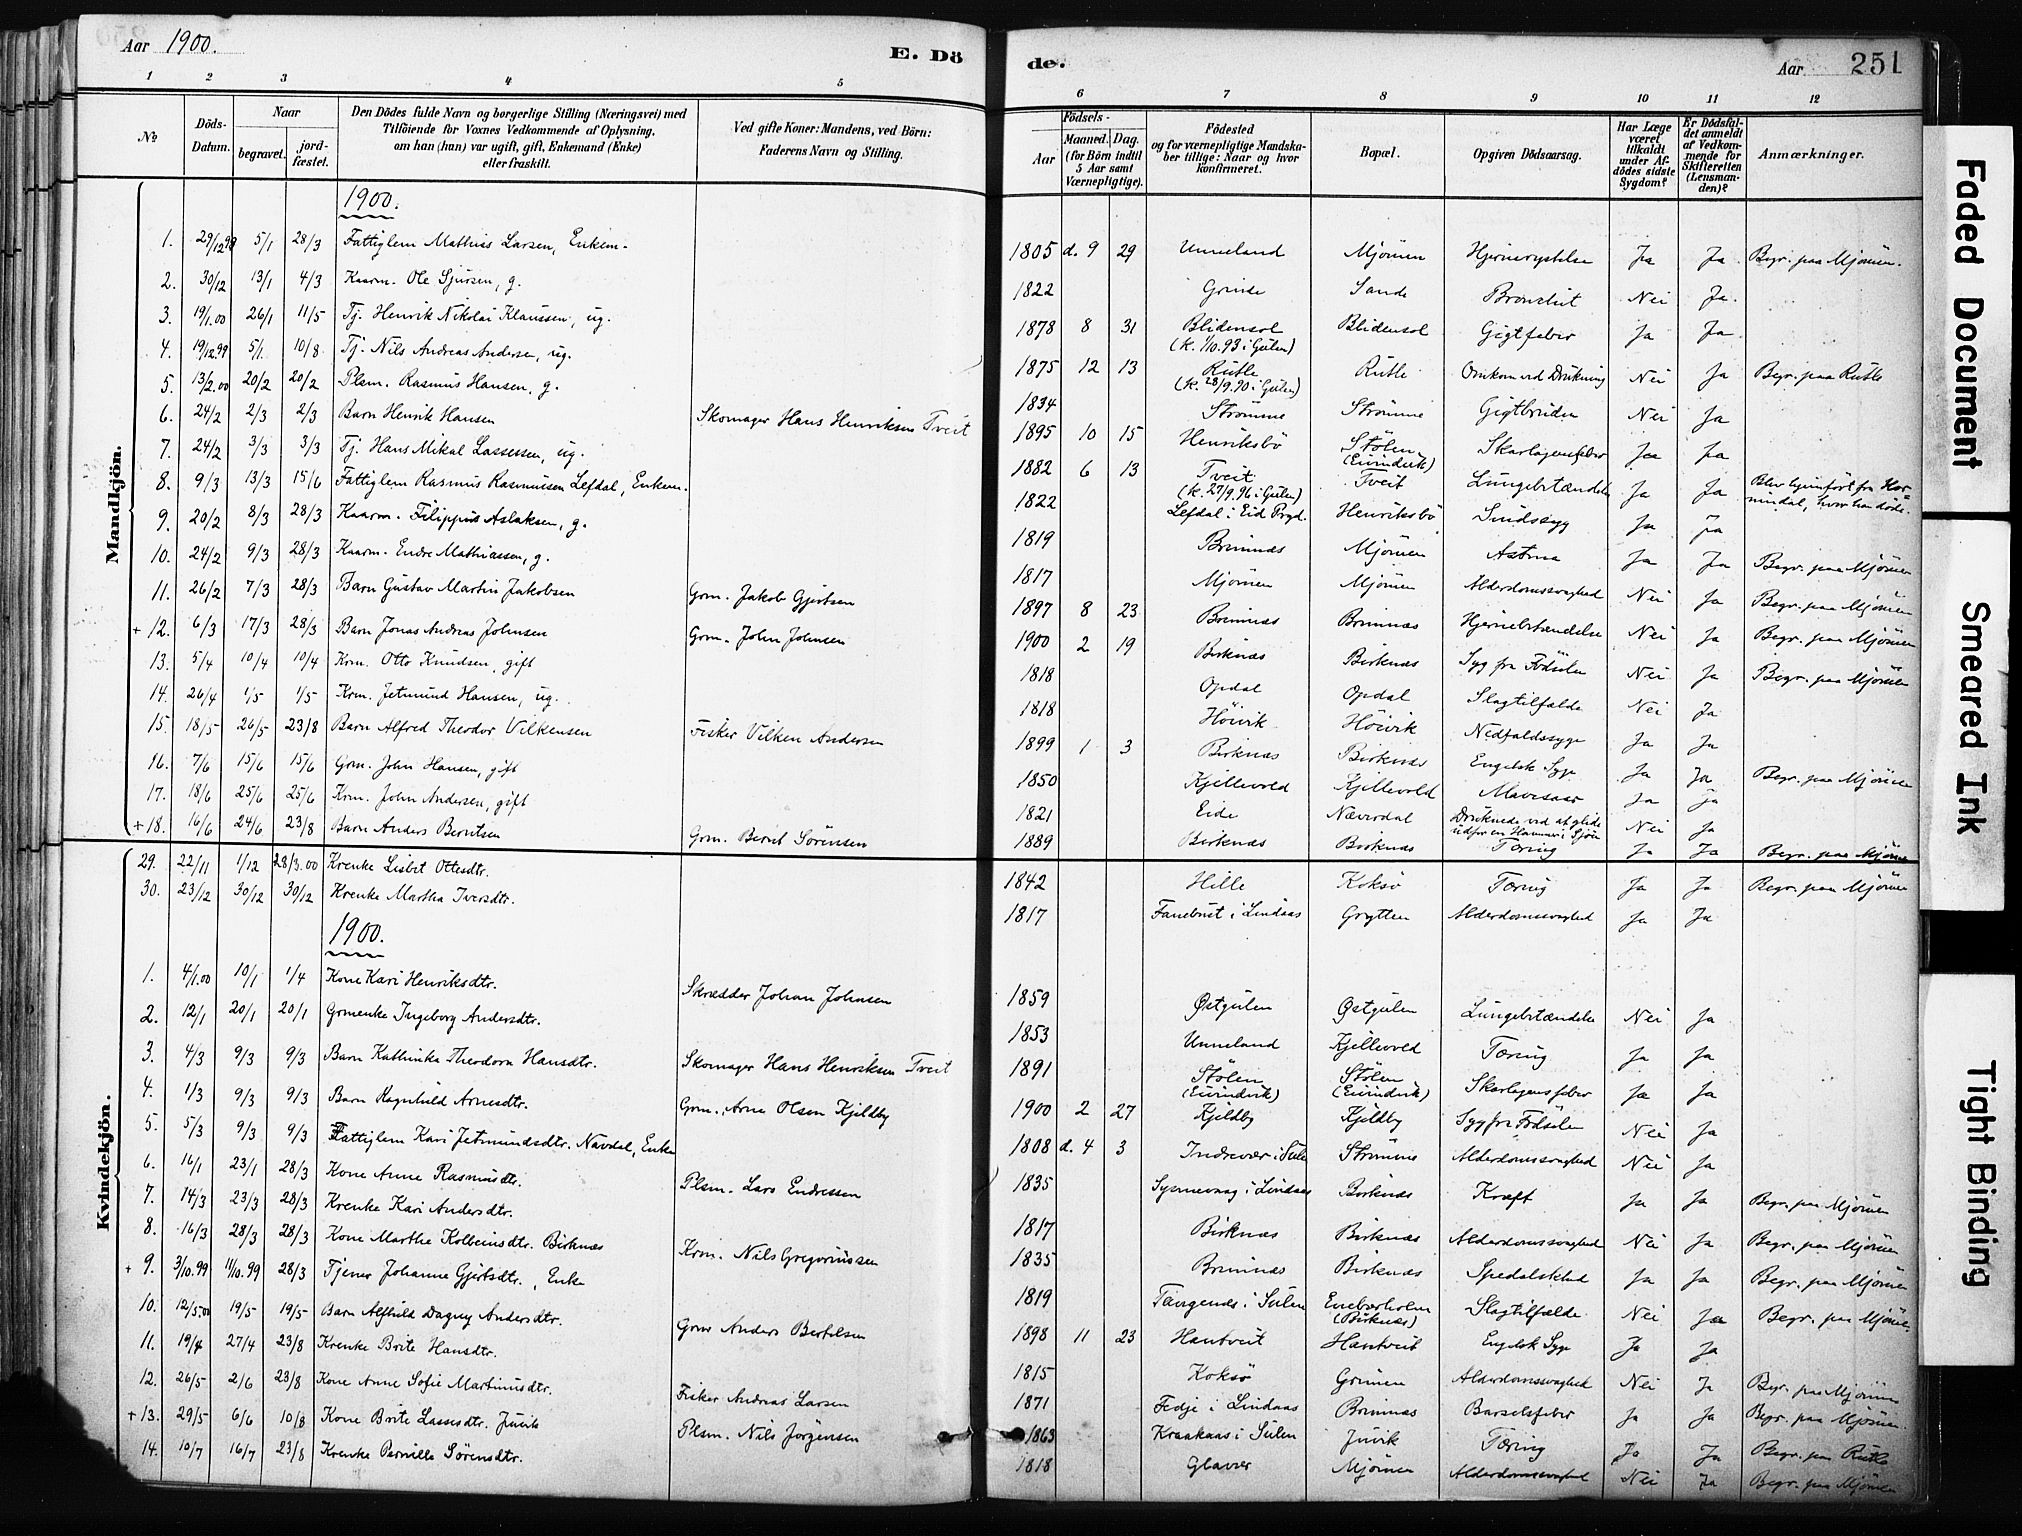 Aar 1900.
E. Dö
de.
Aar
251
1 2 3 4 5 6 7 8 9 10 11 12
No
Döds-Datum.
Naar
begravet.
jord-fæstet.
Den Dödes fulde Navn og borgerlige Stilling (Næringsvei) med
Tilföiende for Voxnes Vedkommende af Oplysning,
om han (hun) var ugift, gift, Enkemand (Enke)
eller fraskilt.
Ved gifte Koner: Mandens, ved Börn:
Faderens Navn og Stilling.
Födsels-
Aar
Maaned.
Dag.
(for Börn indtil
5 Aar samt
Værnepligtige).
Födested
og for værnepligtige Mandska-
ber tillige: Naar og hvor
konfirmeret.
Bopæl.
Opgiven Dödsaarsag.
Har Læge
været
tilkaldt
under Af-
dödes sidste
Sygdom?
Er Dödsfal-
det anmeldt
af Vedkom-
mende for
Skifteretten
(Lensman-
den)?
Anmærkninger.
Mandkjön.
1900.
1. 29/12 99 5/1 28/3 Fattiglem Mathias Larsen, Enkem. 1805 d. 9 29 Unneland Mjömen Hjernerystelse Ja Ja Begr. paa Mjömen.
2. 30/12 13/1 4/3 Kaarm. Ole Sjursen, g. 1822 Grinde Sande Bronchit Nei Ja.
3. 19/1.00 26/1 11/5 Tj. Henrik Nikolai Klaussen, ug. 1878 8 31 Blidensol (k. 1/10.93 i Gulen) Blidensol Gigtfeber Ja Ja
4. 19/12.99 5/1. 10/8 Tj. Nils Andreas Andersen, ug. 1875 12 13 Rutle (k. 28/9.90 i Gulen) Rutle Omkom ved Drukning Nei Ja Begr. paa Rutle
5. 13/2.00 20/2 20/2 Plsm. Rasmus Hansen, g. 1834 Strömme Strömme Gigtbruden Nei Ja
6. 24/2 2/3 2/3 Barn Henrik Hansen Skomager Hans Henriksen Tveit 1895 10 15 Henriksbö Stölen (Eivindvik) Skarlagensfeber Ja Ja
7. 24/2 3/3 3/3 Tj. Hans Mikal Lassessen, ug. 1882 6 13 Tveit (k. 27/9.96 i Gulen) Tveit Lungebetændelse Ja Ja
8. 9/3 13/3 15/6 Fattiglem Rasmus Rasmussen Lefdal, Enkem. 1822 Lefdal i Eid Prgd. Henriksbö Sindssyg Ja Ja Blev hjemfört fra Hor=
mindal, hvor han döde.
9. 20/2 8/3 28/3 Kaarm. Filippus Aslaksen, g. 1819 Brimnes Mjömen Astma Ja Ja Begr. paa Mjömen
10. 24/2 9/3 28/3 Kaarm. Endre Mathiassen, g. 1817 Mjömen Mjömen Alderdomssvaghed Nei Ja Begr. paa Mjömen
11. 26/2 7/3 28/3 Barn Gustav Martin Jakobsen Grm. Jakob Gjertsen 1897 8 23 Brimnes Brimnæs Hjernebetændelse Nei Ja Begr. paa Mjömen
+ 12. 6/3 17/3 28/3 Barn Jonas Andreas Johnsen Grm. John Johnsen 1900 2 19 Birknæs Birknæs Syg fra Födselen Nei Ja Begr. paa Mjömen
13. 5/4 10/4 10/4 Krm. Otto Knudsen, gift 1818 Opdal Opdal Slagtilfælde Nei Ja
14. 26/4 1/5 1/5 Krm. Jetmund Hansen, ug. 1818 Höivik Höivik Nedfaldssyge Ja Ja
15. 18/5 26/5 23/8 Barn Alfred Theodor Vilkensen Fisker Vilken Andersen 1899 1 3 Birknæs Birknæs Engelsk Syge Ja Ja Begr. paa Mjömen
16. 7/6 15/6 15/6 Grm. John Hansen, gift 1850 Kjellevold Kjellevold Mavesaar Ja Ja
17. 18/6 25/6 25/6 Krm. John Andersen, gift 1821 Eide Næverdal Druknede ved at glide
udfor en Hammer i Sjöen Nei Ja
+ 18. 16/6 24/6 23/8 Barn Anders Berntsen Grm. Bernt Sörensen 1889 Birknæs Birknæs Tæring Ja Ja Begr. paa Mjömen
Kvindekjön.
29. 22/11 1/12 28/3.00 Krenke Lisbet Ottesdtr. 1842 Hille Koksö Tæring Ja Ja Begr. paa Mjömen
30. 23/12 30/12 30/12 Krenke Martha Iversdtr. 1817 Fanebust i Lindaas Grytten Alderdomssvaghed Ja Ja
1900.
1. 4/1.00 10/1 1/4 Kone Kari Henriksdtr. Skrædder Johan Johnsen 1859 Østgulen Østgulen Lungebetændelse Nei Ja
2. 12/1 20/1 20/1 Grmenke Ingeborg Andersdtr. 1853 Unneland Kjellevold Tæring Ja Ja
3. 4/3 9/3 9/3 Barn Kathinka Theodora Hansdtr. Skomager Hans Henriksen Tveit 1891 Stölen (Eivindvik) Stölen (Eivindvik) Skarlagensfeber Ja Ja
4. 1/3 9/3 9/3 Barn Ragnhild Arnesdtr. Grm. Arne Olsen Kjeldby 1900 2 27 Kjeldby Kjeldby Syg fra Födselen Nei Ja
5. 5/3 9/3 9/3 Fattiglem Kari Jetmundsdtr. Nävdal, Enke 1808 d. 4 3 Indrevær i Sulen Strömme Alderdomssvaghed Nei Ja
6. 16/1 23/1 28/3 Kone Anne Rasmusdtr. Plsm. Lars Endressen 1835 i Lindaas Birknæs Kræft Ja Ja Begr. paa Mjömen
7. 14/3 23/3 28/3 Krenke Kari Andersdtr. 1817 Birknæs Birknæs Alderdomssvaghed Nei Ja Begr. paa Mjömen
8. 16/3 28/3 28/3 Kone Marthe Kolbeinsdtr. Birknæs Krm. Nils Gregoriussen 1835 Brimnæs Birknæs Spedalskhed Ja Ja Begr. paa Mjömen
+ 9. 3/10.99 11/10.99 28/3 Tjener Johanne Gjertsdtr., Enke 1819 Tangenes i Sulen Eneberholm (Birknæs) Slagtilfælde Nei Ja Begr. paa Mjömen
10. 12/5.00 19/5 19/5 Barn Alfhild Dagny Andersdtr. Grm Anders Bertelsen 1898 11 23 Hantveit Hantveit Engelsk Syge Ja Ja
11. 19/4 27/4 23/8 Krenke Brite Hansdtr. 1815 Koksö Grimen Alderdomssvaghed Nei Ja Begr. paa Mjömen
12. 26/5 2/6 23/8 Kone Anne Sofie Martinusdtr. Fisker Andreas Larsen 1871 Fedje i Lindaas Brimnæs Barselsfeber Ja Ja Begr. paa Mjömen.
+ 13. 29/5 6/6 10/8 Kone Brite Lassesdtr. Juvik Plsm. Nils Jörgensen 1863 Kraakaas i Sulen Juvik Tæring Ja Ja Begr. paa Rutle
14. 10/7 16/7 23/8 Krenke Pernille Sörensdtr. 1818 Glavær Mjömen Alderdomssvaghed Nei Ja Begr. paa Mjömen
Faded Document
Smeared Ink
Tight Binding